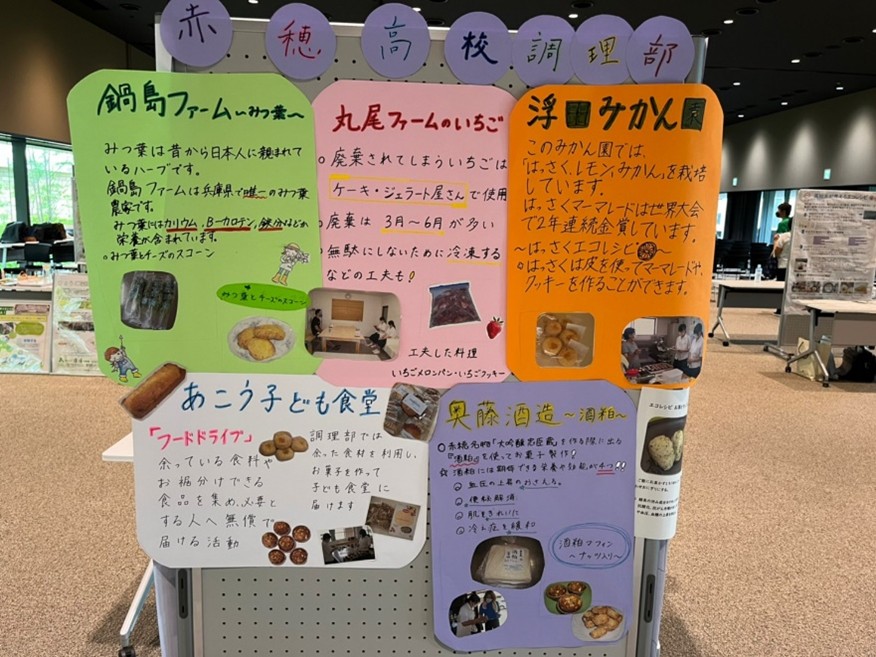 赤穂高校調理部
鍋島ファーム〜みつ葉〜
みつ葉は昔から日本人に親まれて
いるハーブです。
鍋島ファームは兵庫県で唯一のみつ葉
農家です。
みつ葉にはカリウム、B-カロテン、鉄分などの
栄養が含まれています。
みつ葉とチーズのスコーン
みつ葉とチーズのスコーン
丸尾ファームのいちご
○廃棄されてしまういちごは
ケーキ・ジェラート屋さんで使用
○廃棄は 3月〜6月が多い
○無駄にしないために冷凍する
などの工夫も!
工夫した料理
いちごメロンパン・いちごクッキー
浮田みかん園
このみかん園では、
「はっさく、レモン、みかん」を栽培
しています。
はっさくマーマレードは世界大会
で2年連続金賞しています。
〜はっさくエコレシピ〜
○はっさくは皮を使ってマーマレードや、
クッキーを作ることができます。
あこう子ども食堂
「フードドライブ」
余っている食料や
お裾分けできる
食品を集め、必要と
する人へ無償で
届ける活動
調理部では
余った食材を利用し、
お菓子を作って
子ども食堂に
届けます
奥藤酒造〜酒粕〜
○赤穂名物「大吟醸忠臣蔵」を作る際に出る
『酒粕』を使ってお菓子製作!
☆酒粕には期待できる栄養や効能が4つ!!
血圧の上昇のおさえる。
便秘解消
肌をきれいに
冷え症を緩和
酒粕マフィン
〜ナッツ入り〜
エコレシピ